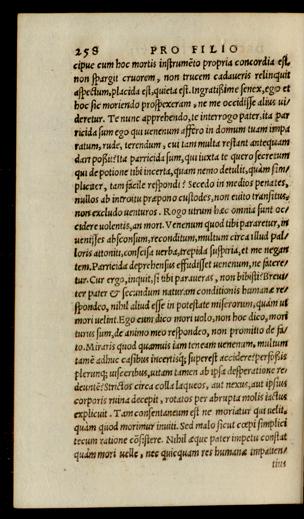 258 PRO FILIO
cipue cum hoc mortis instrumẽto propria concordia est,
non spargit cruorem, non trucem cadaveris relinquit
aspectum, placida est, quieta est. Ingratißime senex, ego et
hoc sic moriendo prospexeram, ne me occidisse alius vi/
deretur. Te nunc apprehendo, te interrogo pater, ita par
ricida sum ego qui uenenum affero in domum tuam impa
ratum, rude, terendum, cui tam multa restant antequam
dari poßit? Ita parricida sum, qui iuxta te quero secretum
qui de potione tibi incerta, quam nemo detulit, quàm sim/
pliciter, tam facile respondi? Secedo in medios penates,
nullos ab introitu præpono custodes, non euito transitus,
non excludo uenturos. Rogo utrum hæc omnia sunt oc/
cidere uolentis, an mori. Venenum quod tibi pararetur, in
uenisses absconsum, reconditum, multum circa illud pal/
loris attoniti, confusa uerba, trepida suspiria, et me negan
tem. Parricida deprehensus effudisset uenenum, ne fatere/
tur. Cur ergo, inquit, si tibi paraueras, non bibisti? Breui/
ter pater & secundum naturam conditionis humanæ re/
spondeo, nihil aliud esse in potestate miserorum, quàm ut
mori uelint. Ego cum dico mori uolo, non hoc dico, mori
turus sum, de animo meo respondeo, non promitto de fa/
to. Miraris quod quamuis iam teneam uenenum, multum
tamẽ adhuc casibus incertisq́; superest accidere? perfoßis
plerunq; uisceribus, uitam tamen ab ipsa desperatione re/
deuntẽ? Strictos circa colla laqueos, aut nexus, aut ipsius
corporis ruina decepit, rotatos per abrupta molis iactus
explicuit. Tam consentaneum est ne moriatur qui uelit,
quàm quod morimur inuiti. Sed malo sicut cœpi simplici
tecum ratione cõsistere. Nihil æque pater impetu constat
quàm mori uelle, nec quicquam res humanæ impatien/
tius